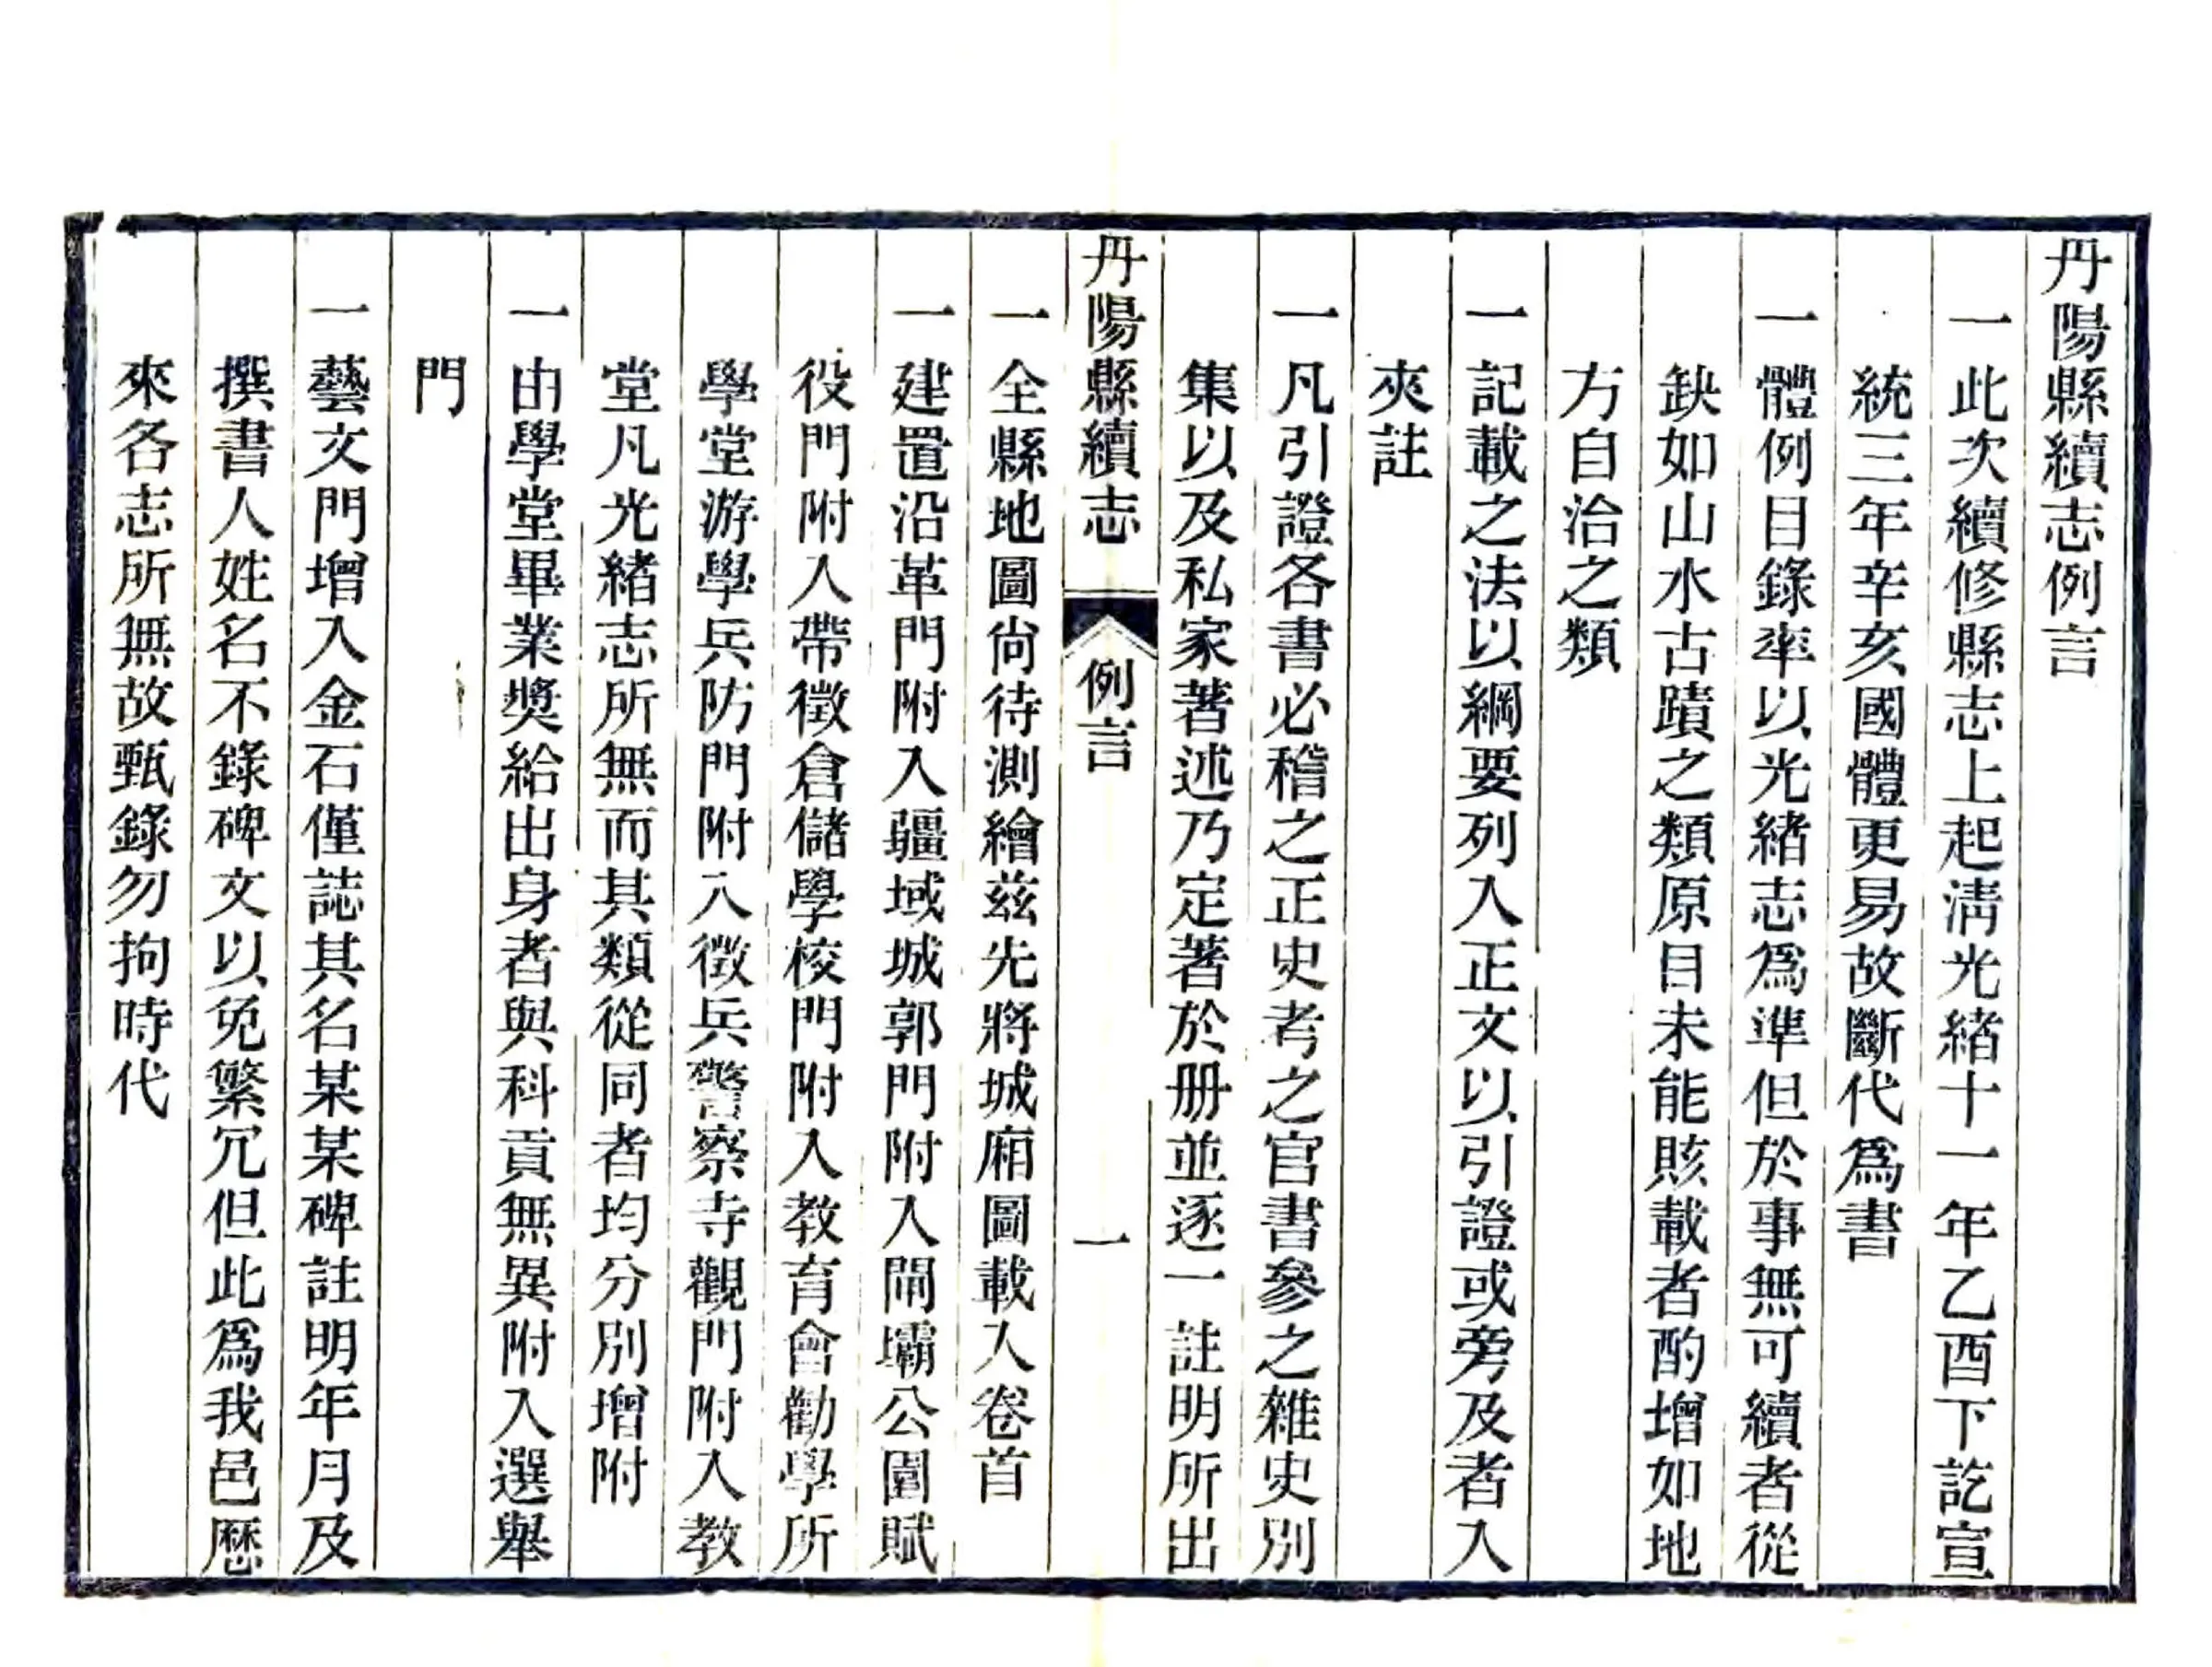 丹陽縣續志例言
一此次續修縣志上起淸光緖十一年乙酉下訖宣
統三年辛亥國體更易故斷代爲書
一體例目錄率以光緖志爲準但於事無可續者從
缺如山水古蹟之類原目未能賅載者酌增如地
方自治之類
一記載之法以綱要列入正文以引證或旁及者入
夾註
一凡引證各書必稽之正史考之官書參之雜史別
集以及私家著述乃定著於册並逐一註明所出
丹陽縣續志 例言 一
一全縣地圖尙待測繪茲先將城廂圖載入卷首
一建置沿革門附入疆域城郭門附入閘壩公園賦
役門附入帶徵倉儲學校門附入教育會勸學所
學堂游學兵防門附入徵兵警察寺觀門附入教
堂凡光緖志所無而其類從同者均分別增附
一由學堂畢業獎給出身者與科貢無異附入選舉
門
一藝文門增入金石僅誌其名某某碑註明年月及
撰書人姓名不錄碑文以免繁冗但此爲我邑歷
來各志所無故甄錄勿拘時代